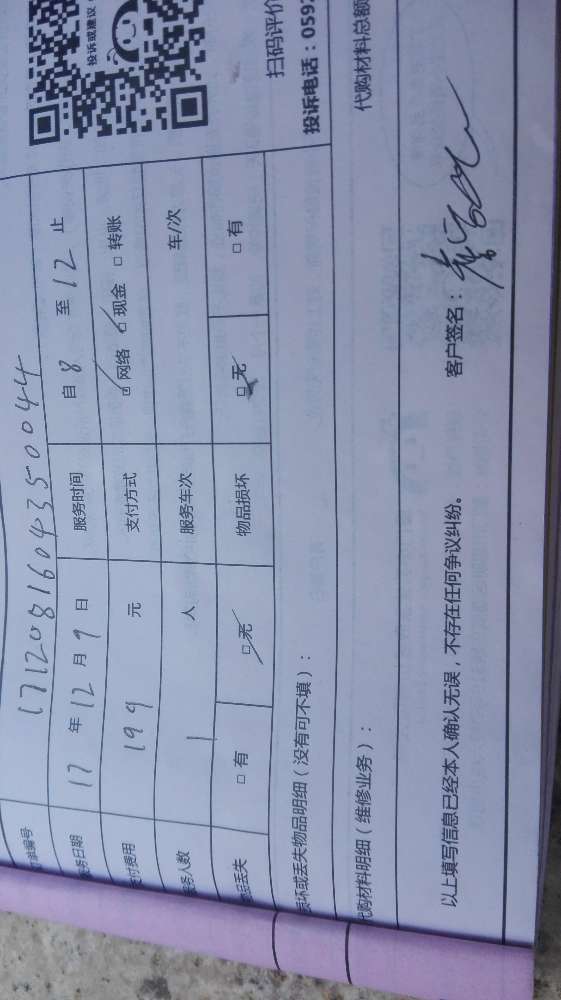 投诉或建议
扫码评价
投诉电话：0592
订单编号 17120816043500​44
服务日期 17 年 12 月 9 日 服务时间 自 8 至 12 止
支付费用 199 元 支付方式 ☑网络 ☑现金 □转账
服务人数 1 人 服务车次 车/次
物品丢失 □有 ☑无 物品损坏 ☑无 □有
损坏或丢失物品明细（没有可不填）：
代购材料明细（维修业务）： 代购材料总额
以上填写信息已经本人确认无误，不存在任何争议纠纷。 客户签名：